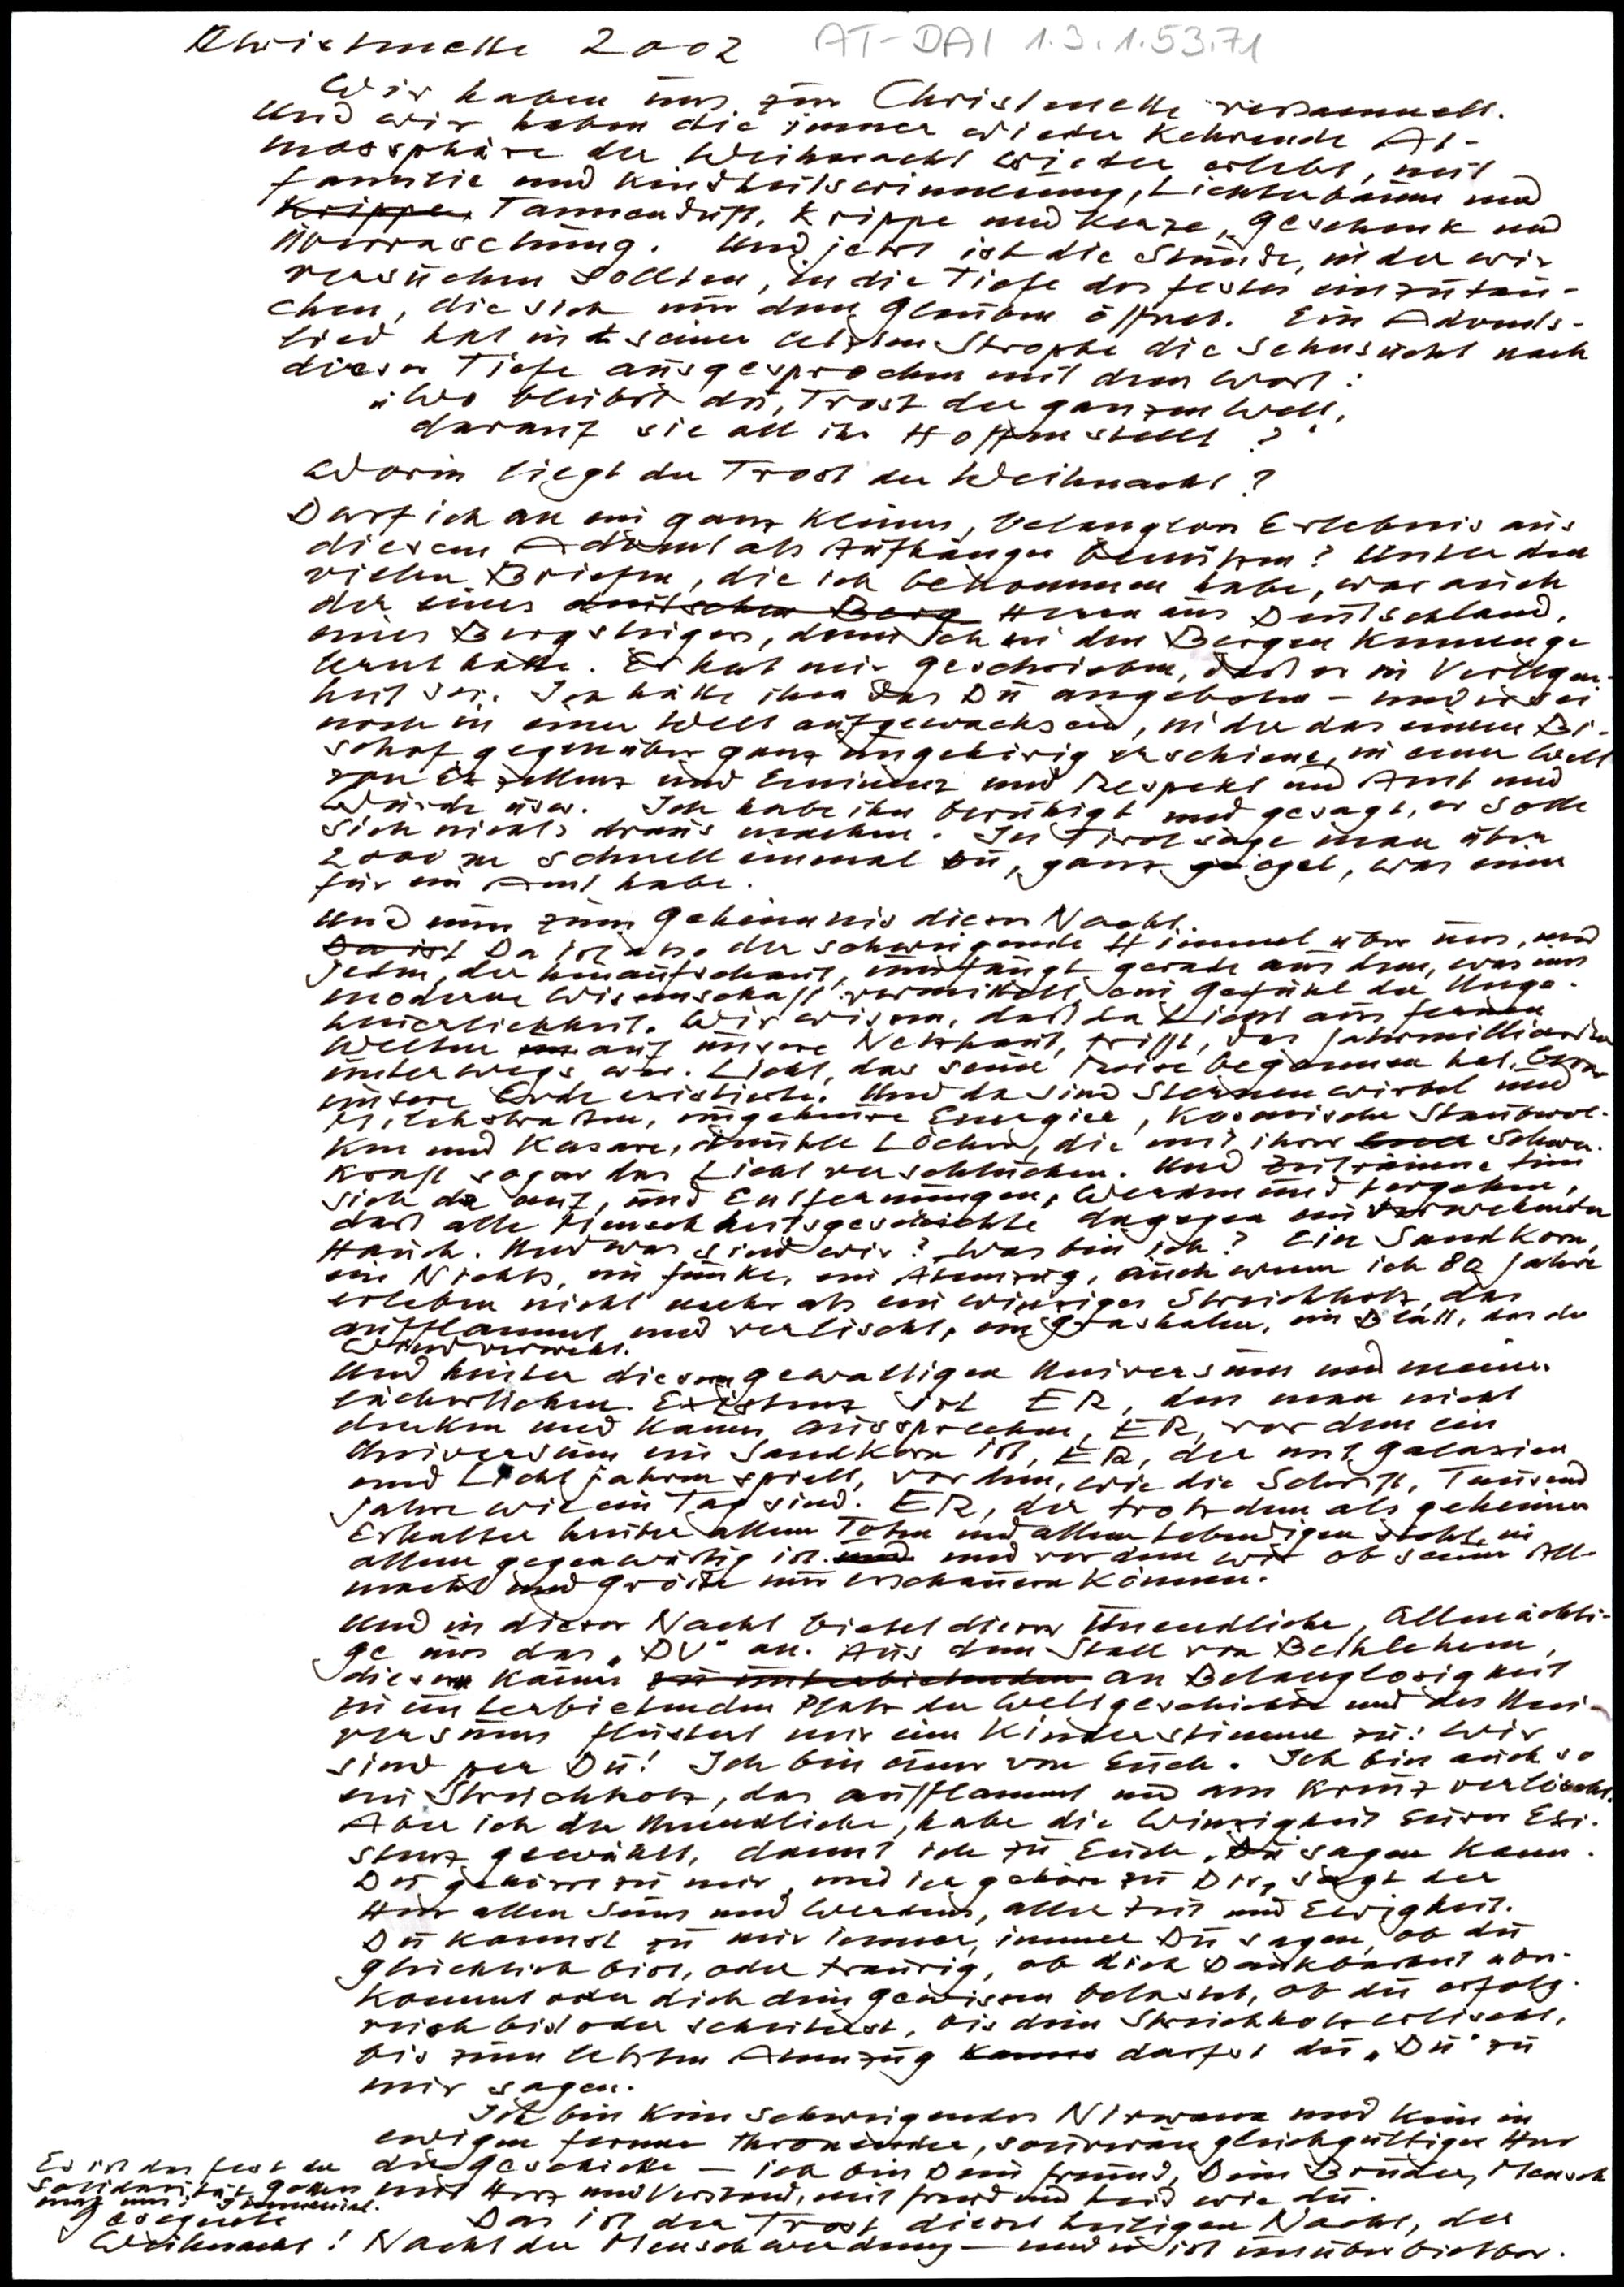 Christmette 2002 AT-DAI 1.3.1.53.71
Wir haben uns zur Christmette versammelt.
Und wir haben die immer wieder kehrende At-
mosphäre der Weihnacht wieder erlebt, mit
Familie und Kindheitserinnerung, Lichterbaum und
Krippe, Tannenduft, Krippe und Kerze, Geschenk und
Überraschung. Und jetzt ist die Stunde, in der wir
versuchen sollten, in die Tiefe des Festes einzutau-
chen, die sich nur dem Glauben öffnet. Ein Advents-
lied hat in seiner letzten Strophe die Sehnsucht nach
dieser Tiefe ausgesprochen mit dem Wort:
"Wo bleibst du, Trost der ganzen Welt,
darauf sie all ihr Hoffen stellt?"
Worin liegt der Trost der Weihnacht?
Darf ich an ein ganz kleines, belangloses Erlebnis aus
diesem Advent als Aufhänger benützen? Unter den
vielen Briefen, die ich bekommen habe, war auch
der eines deutschen Berg Herrn aus Deutschland,
eines Bergsteigers, den ich in den Bergen kennenge
lernt hatte. Er hat mir geschrieben, daß er in Verlegen-
heit sei. Ich hätte ihm das Du angeboten – und er sei
noch in einer Welt aufgewachsen, in der das einem Bi-
schof gegenüber ganz ungehörig erschiene, in einer Welt
von Exzellenz und Eminenz und Respekt und Amt und
Würde usw. Ich habe ihn beruhigt und gesagt, er solle
sich nichts draus machen. In Tirol sage man über
2000 m schnell einmal Du, ganz egal, was einer
für ein Amt habe.
Und nun zum Geheimnis dieser Nacht.
Da ist Da ist also der schweigende Himmel über uns, und
jeden, der hinaufschaut, umfängt gerade aus dem, was uns
moderne Wissenschaft vermittelt, ein Gefühl der Unge-
heuerlichkeit. Wir wissen, daß da Licht aus fernen
Welten auf unsere Netzhaut trifft, das Jahrmilliarden
unterwegs war. Licht, das seine Reise begonnen hat, bevor
unsere Erde existierte. Und da sind Sternenwirbel und
Milchstraßen, ungeheure Energien, kosmische Staubwol-
ken und Kasare, dunkle Löcher, die mit ihrer Schwer-
kraft sogar das Licht verschlucken. Und Zeiträume tun
sich da auf, und Entfernungen, Werden und Vergehen,
daß alle Menschheitsgeschichte dagegen ein verwehender
Hauch. Und was sind wir? Was bin ich? Ein Sandkorn,
ein Nichts, ein Funke, ein Atemzug, auch wenn ich 80 Jahre
erlebe, nicht mehr als ein winziges Streichholz, das
aufflammt und verlischt, ein Grashalm, ein Blatt, das der
Wind verweht.
Und hinter diesem gewaltigen Universum und meiner
lächerlichen Existenz ist ER, den man nicht
denken und kaum aussprechen, ER, vor dem ein
Universum ein Sandkorn ist, ER, der mit Galaxien
und Lichtjahren spielt, vor dem, wie die Schrift, Tausend
Jahre wie ein Tag sind. ER, der trotzdem als geheimer
Erhalter hinter allem Toten und allem Lebendigen steht, in
allem gegenwärtig ist und und vor dem wir ob seiner All-
macht und Größe nur erschauern können.
Und in dieser Nacht bietet dieser Unendliche, Allmächti-
ge uns das „DU“ an. Aus dem Stall von Bethlehem,
diesem kaum zu unterbietenden an Belanglosigkeit
zu unterbietenden Platz der Weltgeschichte und des Uni-
versums flüstert mir eine Kinderstimme zu: Wir
sind per Du! Ich bin einer von Euch. Ich bin auch so
ein Streichholz, das aufflammt und am Kreuz verlischt.
Aber ich der Unendliche, habe die Winzigkeit Eurer Exi-
stenz gewählt, damit ich zu Euch Du sagen kann.
Du gehörst zu mir, und ich gehöre zu Dir, sagt der
Herr allen Seins und Werdens, aller Zeit und Ewigkeit.
Du kannst zu mir immer, immer Du sagen, ob du
glücklich bist, oder traurig, ob dich Dankbarkeit über-
kommt oder dich dein Gewissen belastet, ob du erfolg-
reich bist oder scheiterst, bis dein Streichholz erlischt,
bis zum letzten Atemzug kannst darfst du „Du“ zu
mir sagen.
Ich bin kein schweigendes Nirwana und kein in
ewigen Fernen thronender, souverän gleichgültiger Herr
der Geschicke – ich bin Dein Freund, Dein Bruder, Mensch
mit Herz und Verstand, mit Freud und Leid wie du.
Das ist der Trost dieser heiligen Nacht, der
Nacht der Menschwerdung – und er ist unüberbietbar.
Es ist das Fest der
Solidarität Gottes
mit uns!
Gesegnete
Weihnacht!